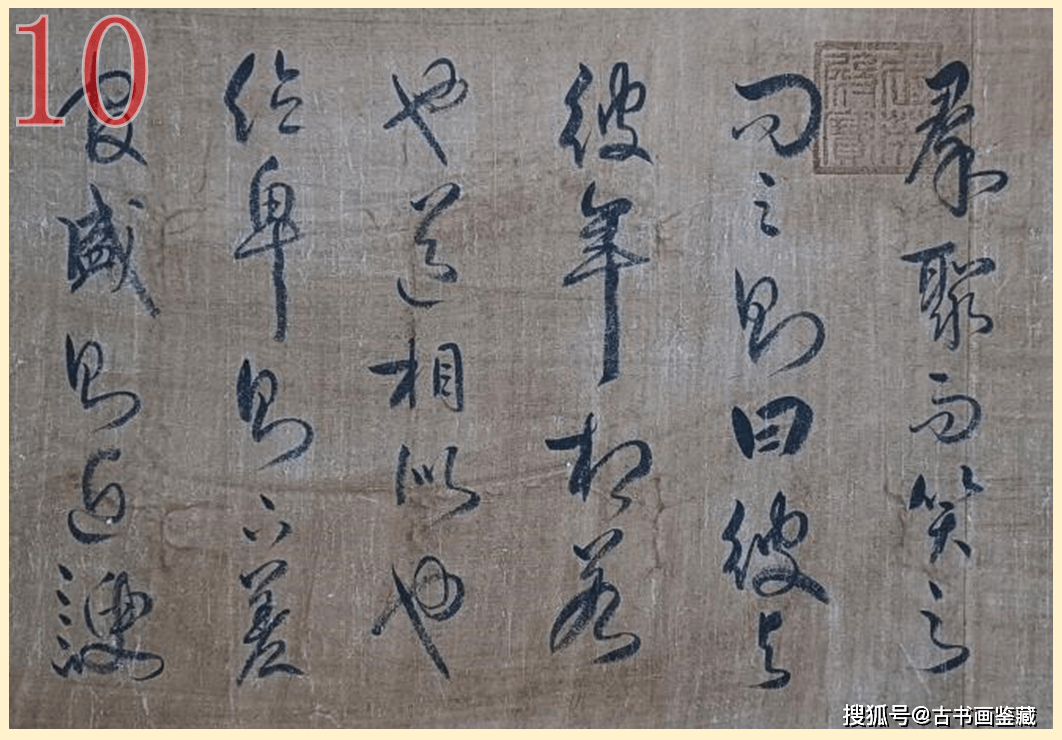 10
羣聚而笑之
問之則曰彼與
彼年相若
也道相似也
位卑則足羞
官盛則近諛
搜狐号@古书画鉴藏